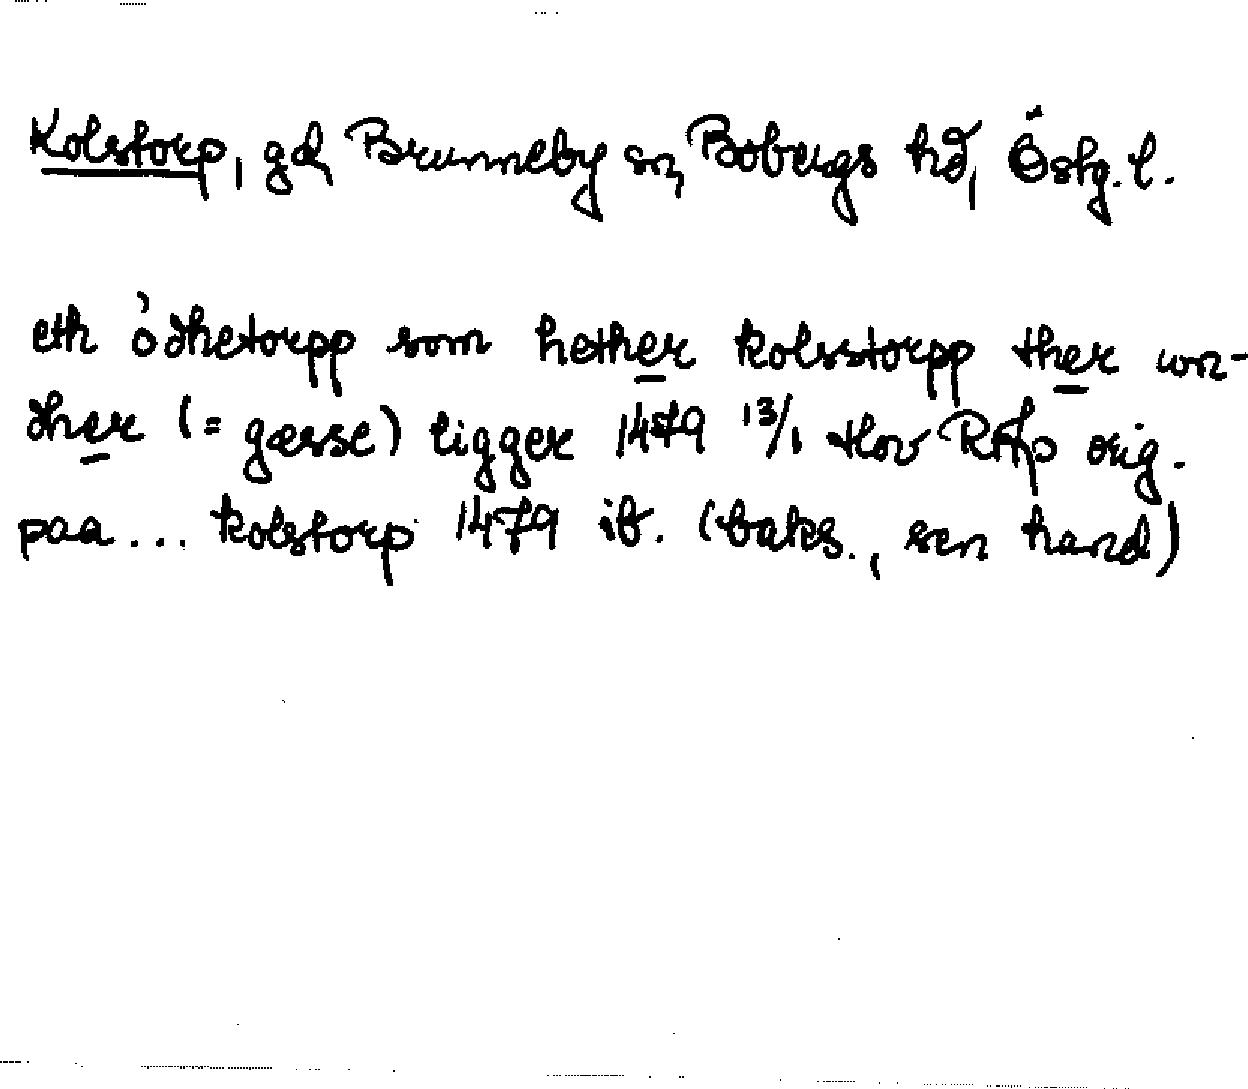 Kolstorp, gd, Brunneby sn, Bobergs hd, Östg. l.
eth ödhetorpp som hether kolsstorpp ther wn-
dher (= gersse) ligger 1479 13/1 Hov RAp orig.
paa... kolstorp 1479 ib. (baks., sen hand)